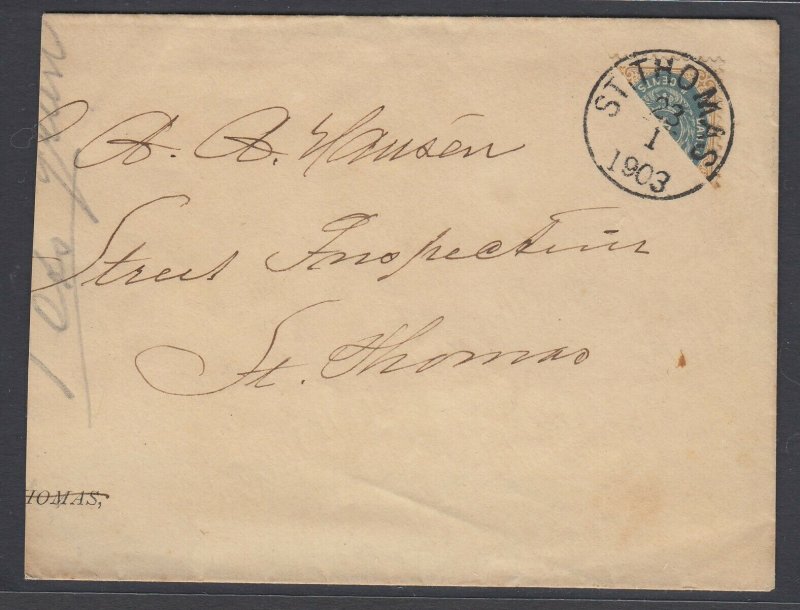 ST THOMAS
23
1
1903
CENTS
A. A. Hansén
Street Inspecteur
St. Thomas
HOMAS,